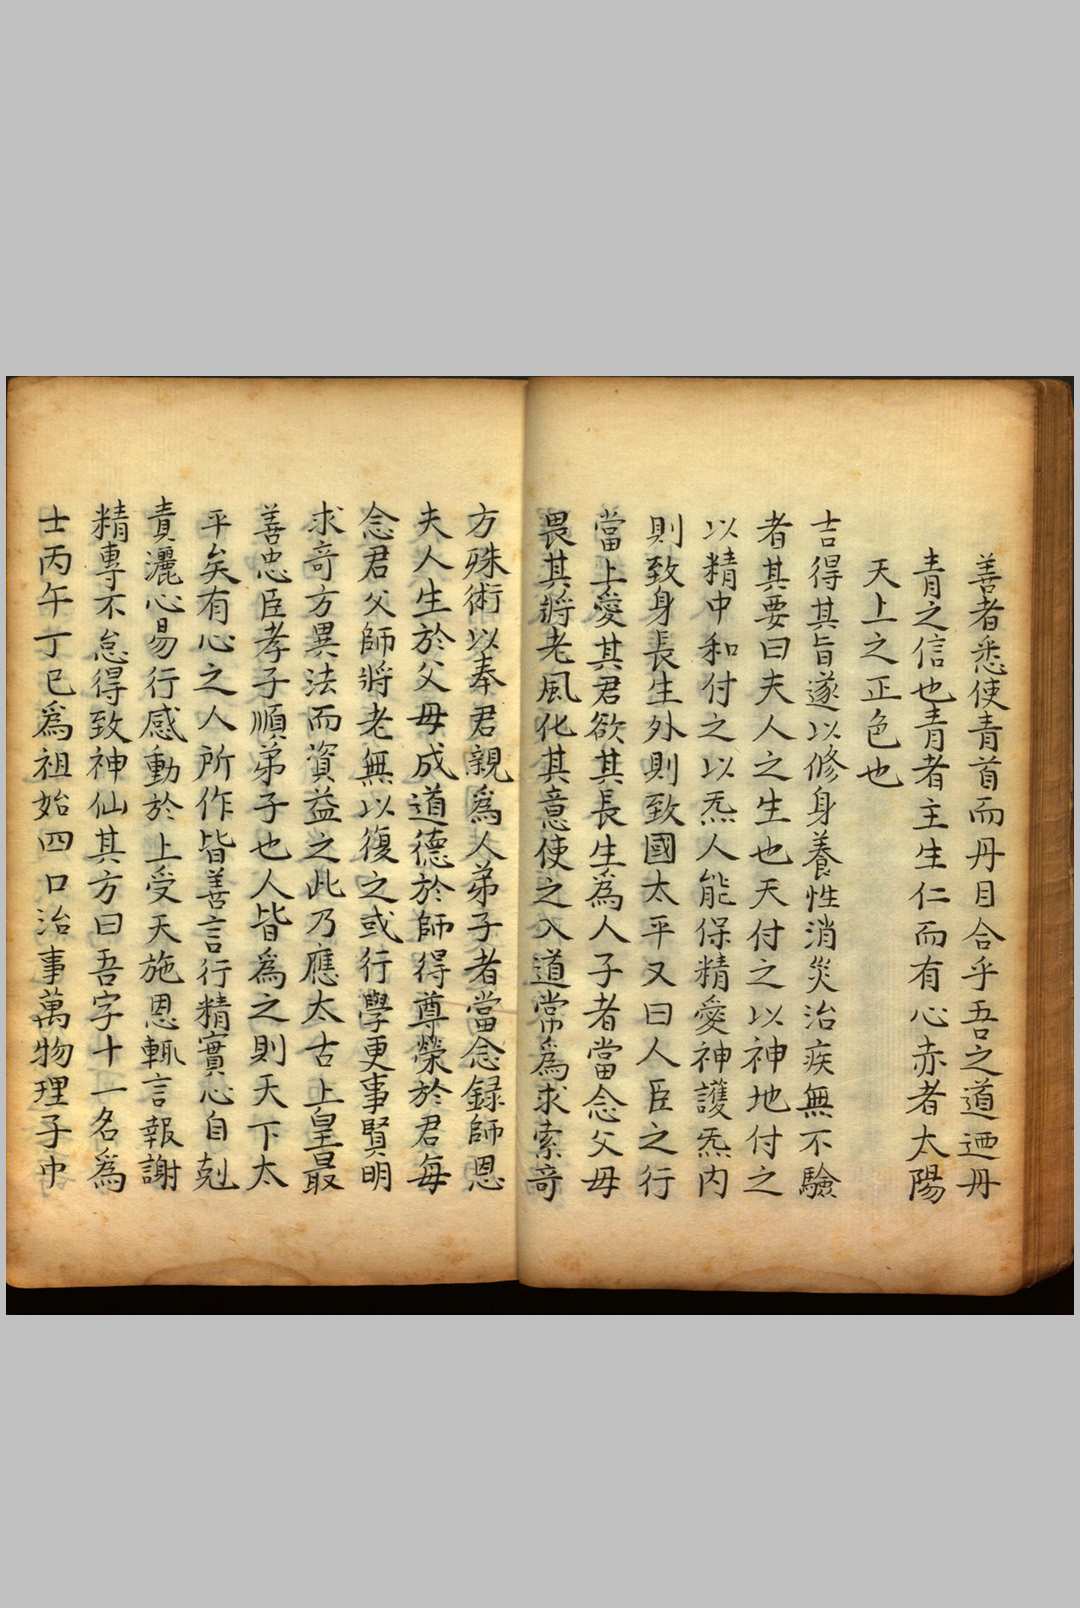 善者悉使青首而丹目合乎吾之道迺丹
青之信也青者主生仁而有心赤者太陽
天上之正色也
吉得其旨遂以修身養性消災治疾無不驗
者其要曰夫人之生也天付之以神地付之
以精中和付之以炁人能保精愛神護炁内
則致身長生外則致國太平又曰人臣之行
當上愛其君欲其長生為人子者當念父母
畏其將老風化其意使之入道常為求索奇
方殊術以奉君親爲人弟子者當念録師恩
夫人生於父母成道德於師得尊榮於君每
念君父師將老無以復之或行學更事賢明
求竒方異法而資益之此乃應太古上皇最
善忠臣孝子順弟子也人皆爲之則天下太
平矣有心之人所作皆善言行精實心自剋
責灑心易行感動於上受天施恩輒言報謝
精專不怠得致神仙其方曰吾字十一名爲
士丙午丁巳爲祖始四口治事萬物理子巾